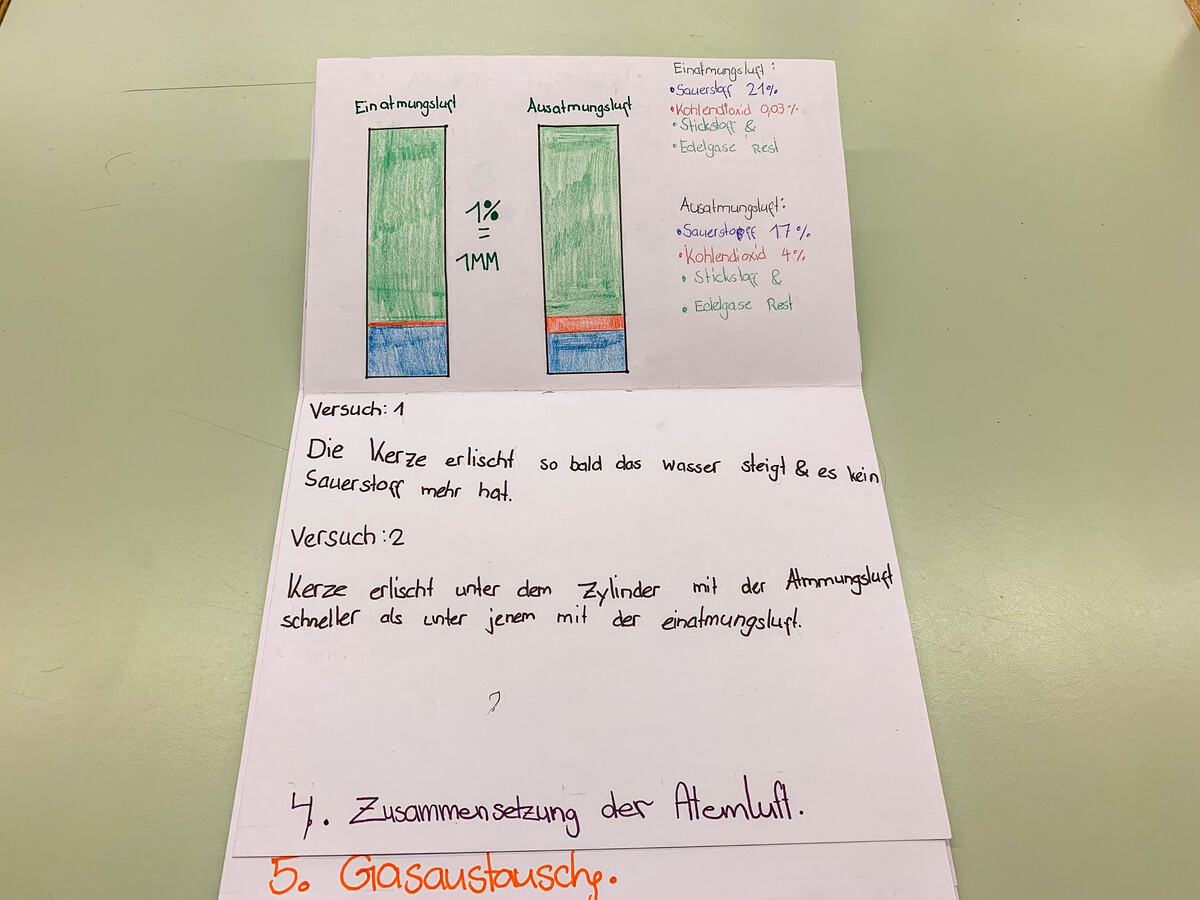 Einatmungsluft
Ausatmungsluft
1%
=
1MM
Einatmungsluft:
•Sauerstoff 21%
•Kohlendioxid 0,03%.
•Stickstoff &
•Edelgase Rest
Ausatmungsluft:
•Sauerstoff 17%
•Kohlendioxid 4%
• Stickstoff &
• Edelgase Rest
Versuch: 1
Die Kerze erlischt so bald das wasser steigt & es kein
Sauerstoff mehr hat.
Versuch:2
Kerze erlischt unter dem Zylinder mit der Atmmungsluft
schneller als unter jenem mit der einatmungsluft.
?
4. Zusammensetzung der Atemluft.
5. Gasaustausch.